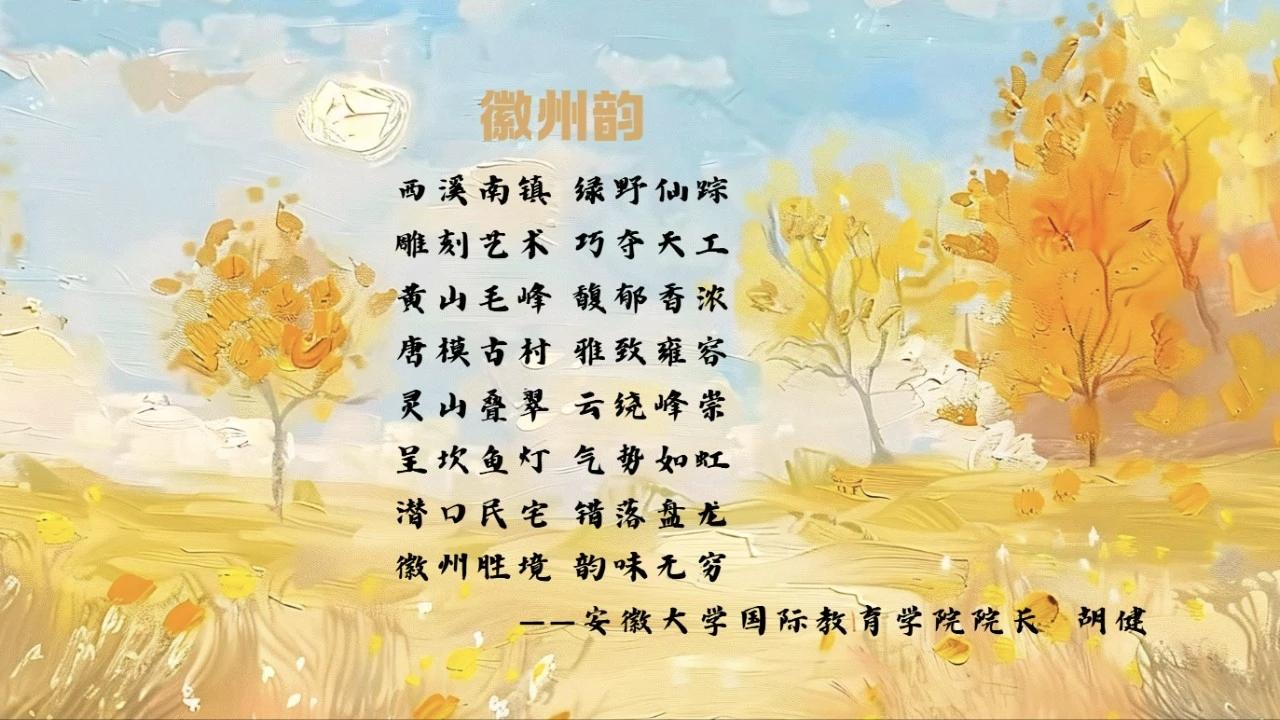 徽州韵
西溪南镇 绿野仙踪
雕刻艺术 巧夺天工
黄山毛峰 馥郁香浓
唐模古村 雅致雍容
灵山叠翠 云绕峰崇
呈坎鱼灯 气势如虹
潜口民宅 错落盘龙
徽州胜境 韵味无穷
——安徽大学国际教育学院院长 胡健